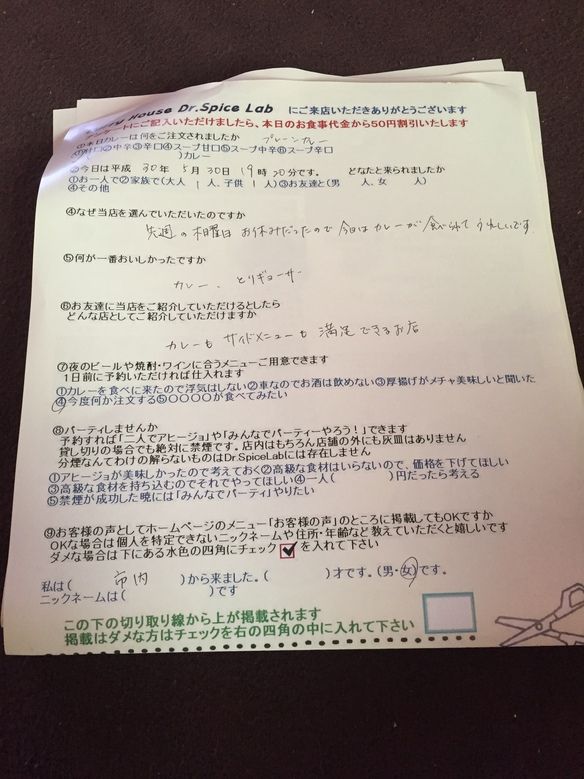 Curry House Dr.Spice Lab にご来店いただきありがとうございます
アンケートにご記入いただけましたら、本日のお食事代金から50円割引いたします
①本日カレーは何をご注文されましたか プレーンカレー
①甘口②中辛③辛口④スープ甘口⑤スープ中辛⑥スープ辛口
( )カレー
今日は平成 30年 5月30日 19時20分です。 どなたと来られましたか
①お一人で②家族で(大人 1人、子供 1人)③お友達と(男 人、女 人)
④その他
④なぜ当店を選んでいただいたのですか
先週の木曜日 お休みだったので 今日はカレーが食べられて うれしいです。
⑤何が一番おいしかったですか
カレー、とりギョーザ
⑥お友達に当店をご紹介していただけるとしたら
どんな店としてご紹介していただけますか
カレーも サイドメニューも 満足できるお店
⑦夜のビールや焼酎・ワインに合うメニューご用意できます
1日前に予約いただければ仕入れます
①カレーを食べに来たので浮気はしない②車なのでお酒は飲めない③厚揚げがメチャ美味しいと聞いた
④今度何か注文する⑤〇〇〇〇が食べてみたい
⑧パーティしませんか
予約すれば「二人でアヒージョ」や「みんなでパーティーやろう!」できます
貸し切りの場合でも絶対に禁煙です。店内はもちろん店舗の外にも灰皿はありません
分煙なんてわけの解らないものはDr.SpiceLabには存在しません
①アヒージョが美味しかったので考えておく②高級な食材はいらないので、価格を下げてほしい
③高級な食材を持ち込むのでそれでやってほしい④一人( )円だったら考える
⑤禁煙が成功した暁には「みんなでパーティ」やりたい
⑨お客様の声としてホームページのメニュー「お客様の声」のところに掲載してもOKですか
OKな場合は個人を特定できないニックネームや住所・年齢など教えていただくと嬉しいです
ダメな場合は下にある水色の四角にチェック を入れて下さい
私は( 市内 )から来ました。( )才です。(男・女)です。
ニックネームは( )です
この下の切り取り線から上が掲載されます
掲載はダメな方はチェックを右の四角の中に入れて下さい